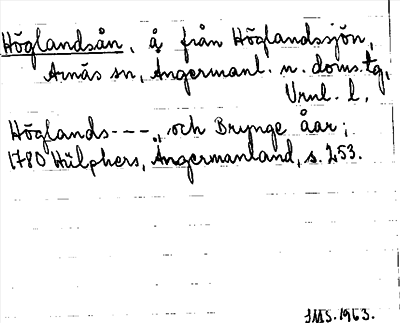 Höglandsån, å från Höglandssjön,
Arnäs sn, Ångermanl. n. doms.tg,
Vrnl. l.
Höglands---, och Brynge åar;
1780 Hülphers, Ångermanland, s. 253.
JMS. 1963.